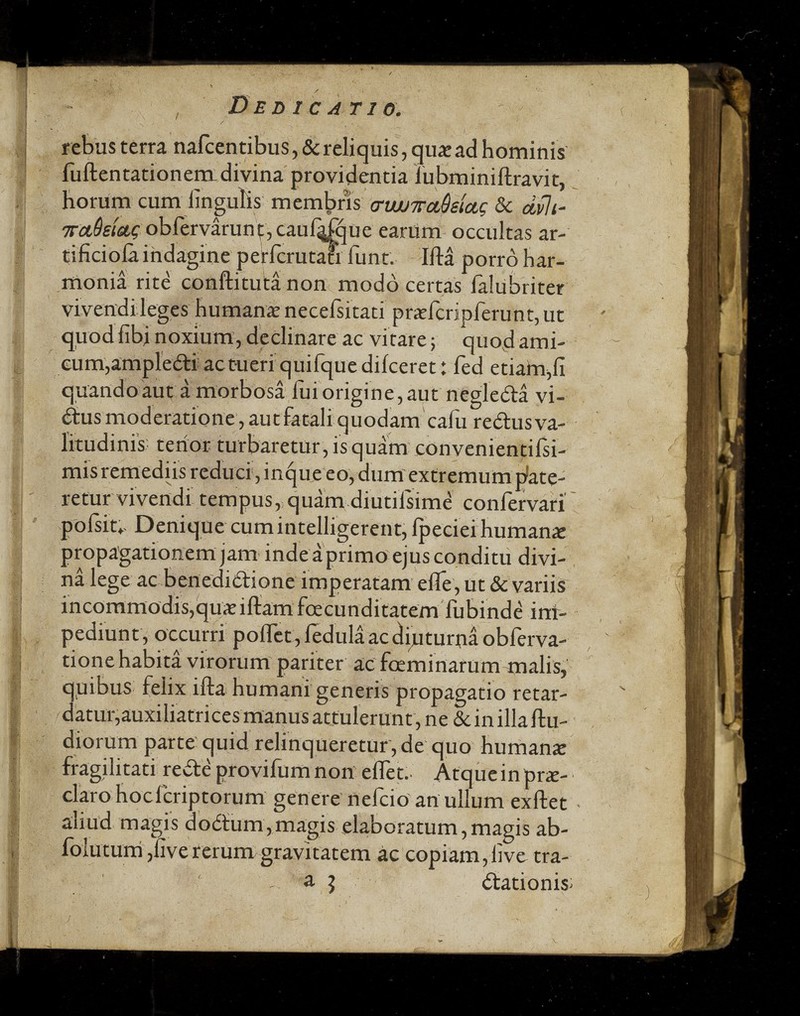 DEDICATIO.
rebus terra naſcentibus, & reliquis, quæ ad hominis
ſuſtentationem divina providentia ſubminiſtravit,
horum cum ſingulis membris συμπαθείας & ἀντι-
παθείας obſervârunt, cauſaſque earum occultas ar-
tificioſa indagine perſcrutati ſunt. Iſtâ porrò har-
moniâ ritè conſtitutâ non modò certas ſalubriter
vivendi leges humanæ neceſsitati præſcripſerunt, ut
quod ſibi noxium, declinare ac vitare; quod ami-
cum, amplecti ac tueri quiſque diſceret: ſed etiam, ſi
quando aut à morbosâ ſui origine, aut neglectâ vi-
ctus moderatione, aut fatali quodam caſu rectus va-
litudinis tenor turbaretur, is quàm convenientiſsi-
mis remediis reduci, inque eo, dum extremum pate-
retur vivendi tempus, quàm diutiſsimè conſervari
poſsit. Denique cum intelligerent, ſpeciei humanæ
propagationem jam inde à primo ejus conditu divi-
nâ lege ac benedictione imperatam eſſe, ut & variis
incommodis, quæ iſtam fœcunditatem ſubindè im-
pediunt, occurri poſſet, ſedulâ ac diuturnâ obſerva-
tione habitâ virorum pariter ac fœminarum malis,
quibus felix iſta humani generis propagatio retar-
datur, auxiliatrices manus attulerunt, ne & in illa ſtu-
diorum parte quid relinqueretur, de quo humanæ
fragilitati rectè proviſum non eſſet. Atque in præ-
claro hoc ſcriptorum genere neſcio an ullum exſtet
aliud magis doctum, magis elaboratum, magis ab-
ſolutum, ſive rerum gravitatem ac copiam, ſive tra-
a 3 ctationis